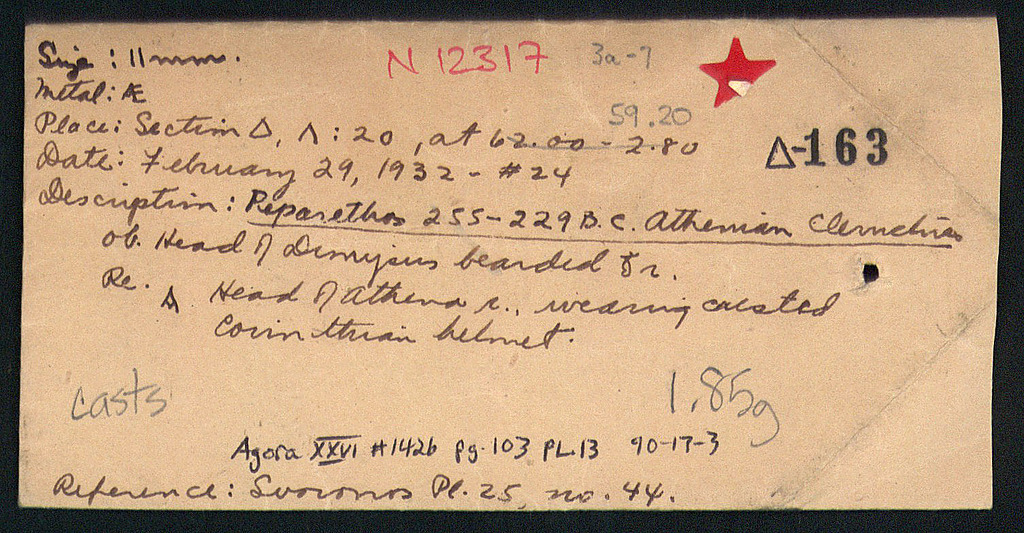 Size : 11 mm.
N 12317
3a-7
Metal: Æ
59.20
Place: Section Δ, Λ : 20, at 62.00 - 2.80
Δ-163
Date: February 29, 1932 - #24
Description: Peparethos 255-229 B.C. Athenian Cleruchies
Ob. Head of Dionysus bearded to r.
Re. Head of Athena r., wearing crested
Δ
Corinthian helmet.
casts
1.85g
Agora XXVI #1426 pg. 103 PL.13 90-17-3
Reference: Svoronos Pl. 25, no. 44.